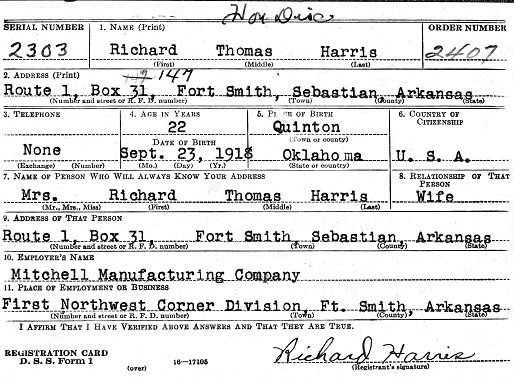 Hon Disc
SERIAL NUMBER 1. NAME (Print) ORDER NUMBER
2303 Richard Thomas Harris 2407
(First) (Middle) (Last)
2. ADDRESS (Print) 147
Route 1, Box 31, Fort Smith, Sebastian, Arkansas
(Number and street or R. F. D. number) (Town) (County) (State)
3. TELEPHONE 4. AGE IN YEARS 5. PLACE OF BIRTH 6. COUNTRY OF CITIZENSHIP
22 Quinton
DATE OF BIRTH (Town or county)
None Sept. 23, 1918 Oklahoma U. S. A.
(Exchange) (Number) (Mo.) (Day) (Yr.) (State or country)
7. NAME OF PERSON WHO WILL ALWAYS KNOW YOUR ADDRESS 8. RELATIONSHIP OF THAT PERSON
Mrs. Richard Thomas Harris Wife
(Mr., Mrs., Miss) (First) (Middle) (Last)
9. ADDRESS OF THAT PERSON
Route 1, Box 31 Fort Smith Sebastian, Arkansas
(Number and street or R. F. D. number) (Town) (County) (State)
10. EMPLOYER'S NAME
Mitchell Manufacturing Company
11. PLACE OF EMPLOYMENT OR BUSINESS
First Northwest Corner Division, Ft. Smith, Arkansas
(Number and street or R. F. D. number) (Town) (County) (State)
I AFFIRM THAT I HAVE VERIFIED ABOVE ANSWERS AND THAT THEY ARE TRUE.
REGISTRATION CARD
D. S. S. Form 1 16—17105 Richard Harris
(over) (Registrant's signature)